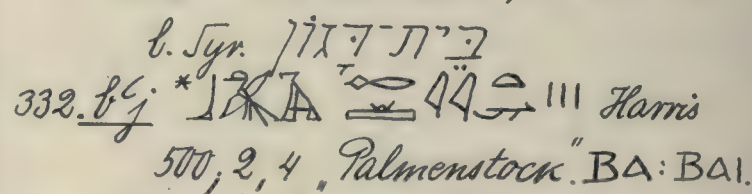 b. Syr. בּית־דּגון
332. bʿj * III Harris
500, 2, 4 „Palmenstock“. ⲂⲀ: ⲂⲀⲒ.